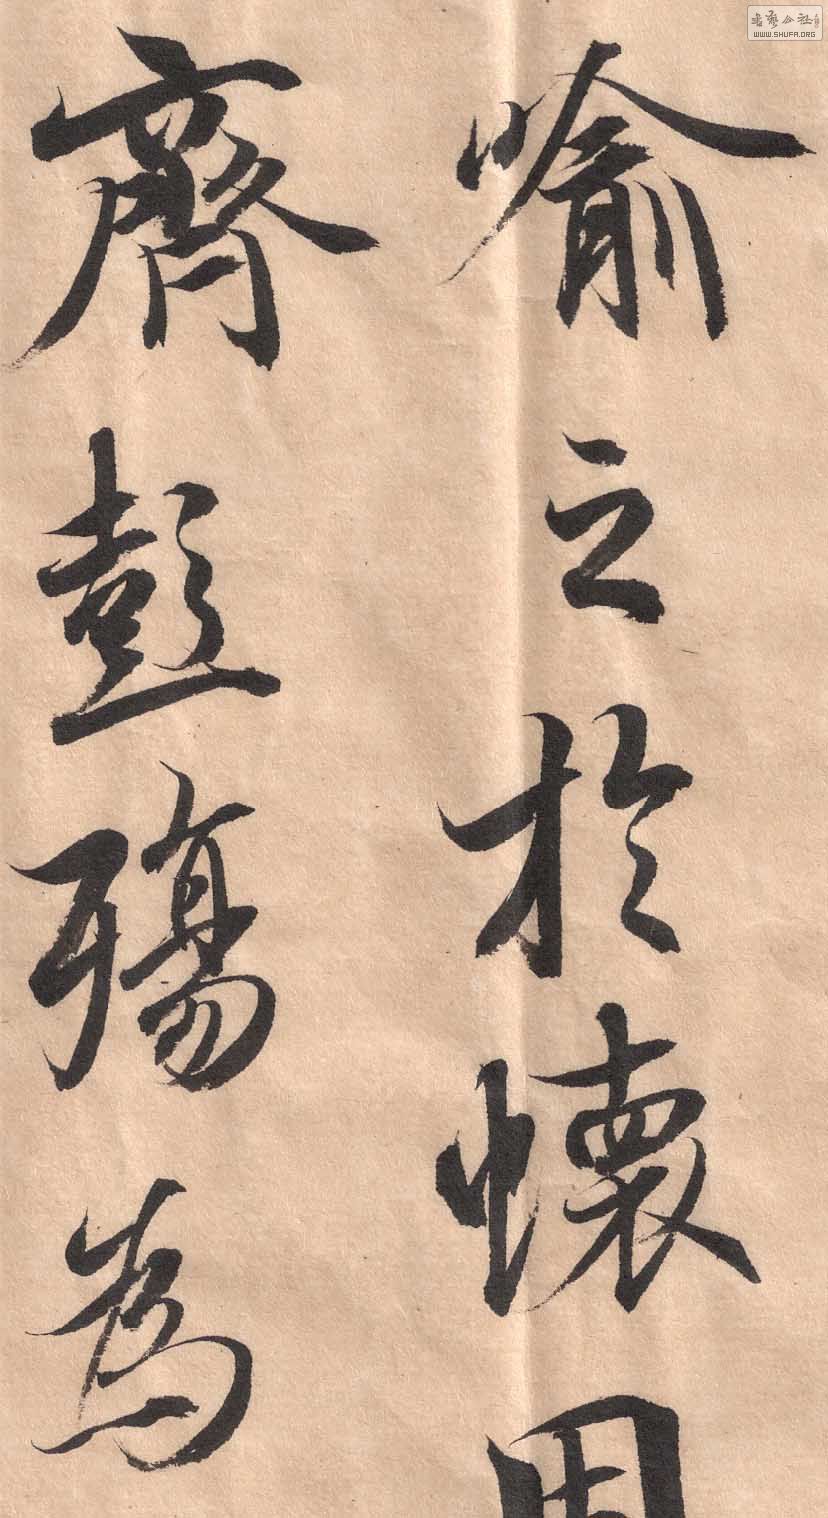 喻之於懷固
齊彭殤為
書藝公社
WWW.SHUFA.ORG